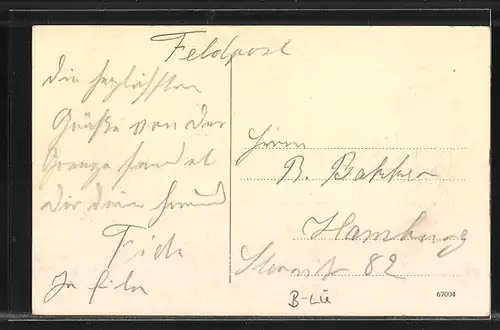 Feldpost
Die herzlichsten
Grüße von der
Grenze sendet
Dir dein Freund
Fide
In Eile
Herrn
B. Bakker
Hamburg
82
B-Lü
67094